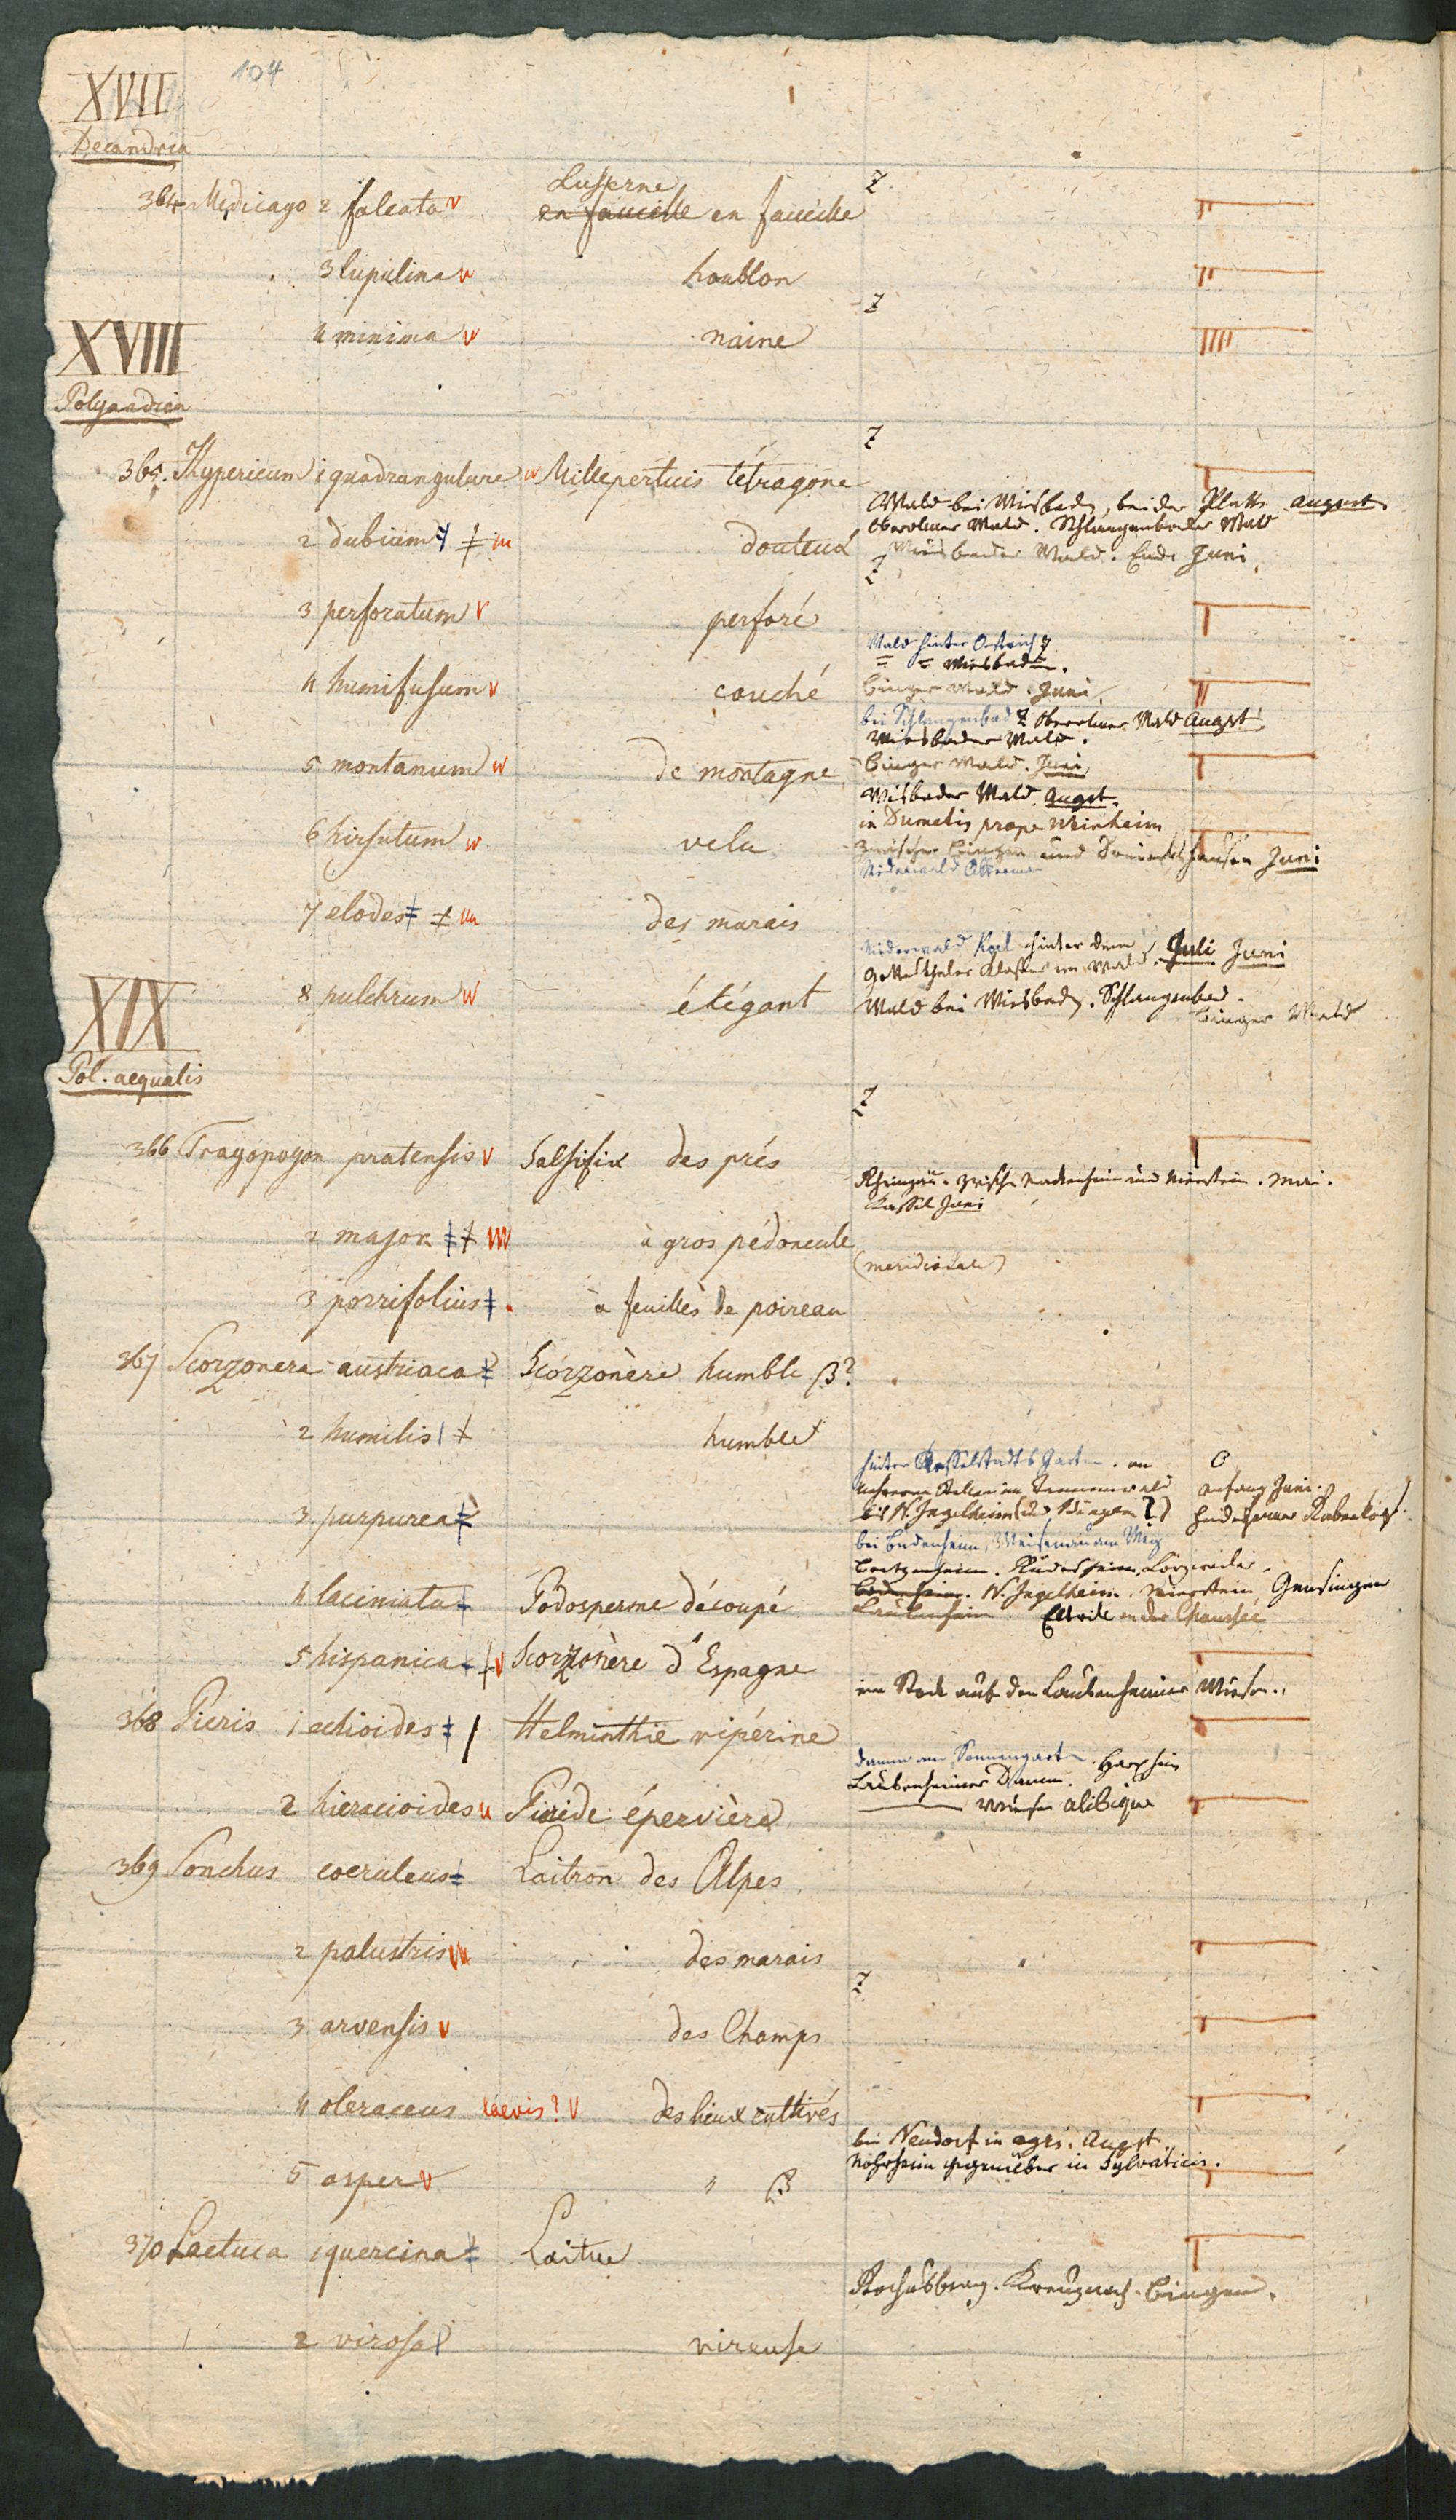 104
XVII
Decandria
364 Medicago 2 falcata v Luserne
en faucille en faucille
Z
3 lupulina v houblon
Z
4 minima v naine
XVIII
Polyandria
Z
365. Hypericum 1 quadrangulare v Millepertuis tétragone
Wald bei Wisbaden, bei der Platte August
2 dubium douteux
Oberolmer Wald. Schlangenbader Wald
Wiesbader Wald. Ende Juni.
Z
3 perforatum v perforé
Wald hinter
= = Wiesbaden.
4 humifusum v couché Binger Wald. Juni.
bei Schlangenbad Z Oberolmer Wald Augst
Wiesbader Wald.
5 montanum de montagne Binger Wald. Juni
Wisbader Wald. Augst.
in Dumetis prope Weinheim
6 hirsutum velu
zwischen Bingen und Juni
Niederwald
7 elodes des marais
Niederwald hinter dem Juli Juni
Kloster im Wald.
8 pulchrum élégant Wald bei Wiesbaden. Schlangenbad.
Binger Wald
XIX
Pol. aequalis
Z
366 Tragopogon pratensis v Salsifix des prés
Rheingau. zwischen Nackenheim und Nierstein. Mai.
Kassel Juni
2 major à gros pédoncule
(meridionale)
3 porrifolius à feuilles de poireau
367 Scorzonera austriaca Scorzonère humble β?
2 humilis humble
hinter Garten. an
mehreren Stellen im Tannenwald Anfang Juni.
3 purpurea bis N. Ingelheim (Bingen?)
bei Budenheim, am Weg
4 laciniata Podosperme découpé
N. Ingelheim. Nierstein Gensingen
Laubenheim an der Chaussée
5 hispanica v Scorzonère d'Espagne
im Rode auf den Laubenheimer Wiesen.
368 Picris 1 echioides Helminthie vipérine
Damm am Sonnengarten.
Laubenheimer Damm.
2 hieracioides Picride épervière Wiesen alibique
369 Sonchus coeruleus Laitron des Alpes
2 palustris des marais
Z
3 arvensis v des Champs
4 oleraceus laevis? v des lieux cultivés
bei Neudorf in agris. Augst.
gegenüber in Sylvaticis.
5 asper v " β
370 Lactuca 1 quercina Laitue
Rochusberg. Kreuznach. Bingen.
2 virosa vireuse